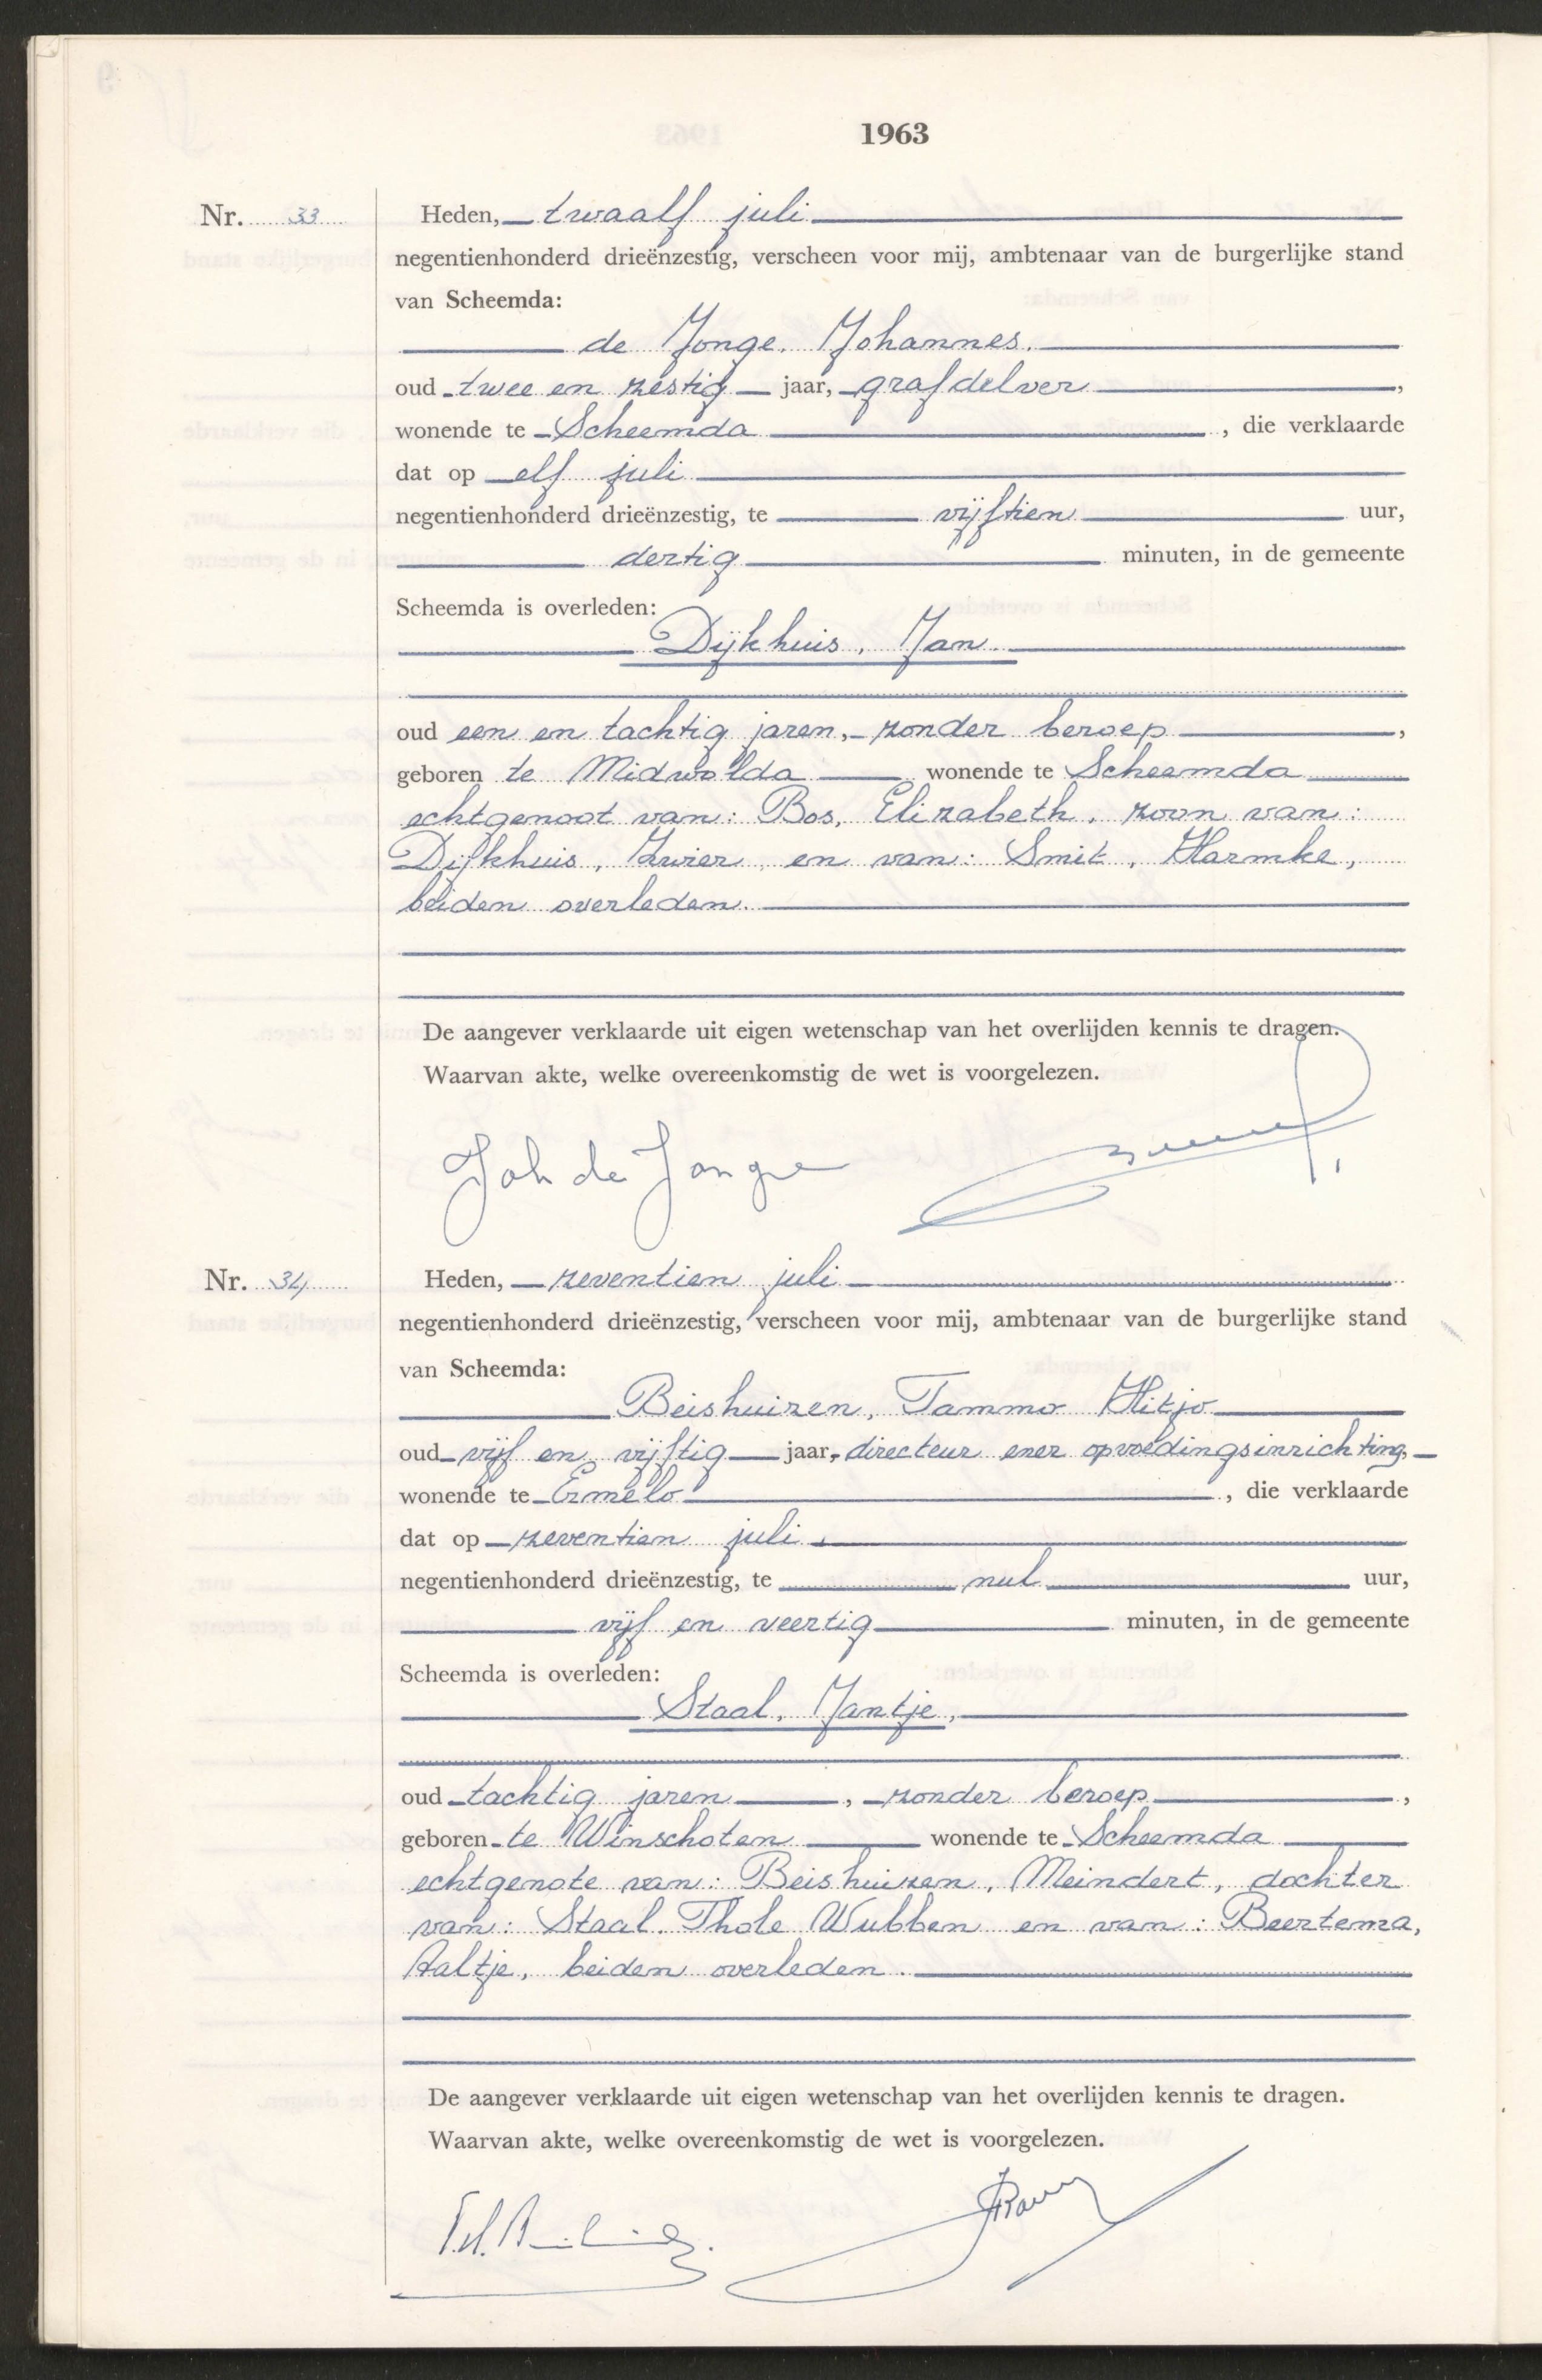 1963
Nr. 33
Heden, twaalf juli
negentienhonderd drieënzestig, verscheen voor mij, ambtenaar van de burgerlijke stand
van Scheemda:
de Jonge, Johannes.
oud twee en zestig jaar, grafdelver,
wonende te Scheemda, die verklaarde
dat op elf juli
negentienhonderd drieënzestig, te vijftien uur,
dertig minuten, in de gemeente
Scheemda is overleden:
Dijkhuis, Jan
oud een en tachtig jaren, zonder beroep,
geboren te Midwolda wonende te Scheemda
echtgenoot van: Bos, Elizabeth, zoon van:
Dijkhuis, Zwier en van: Smit, Harmke,
beiden overleden.
De aangever verklaarde uit eigen wetenschap van het overlijden kennis te dragen.
Waarvan akte, welke overeenkomstig de wet is voorgelezen.
Joh de Jonge
Nr. 34
Heden, zeventien juli
negentienhonderd drieënzestig, verscheen voor mij, ambtenaar van de burgerlijke stand
van Scheemda:
Beishuizen, Tammo Hitjo
oud vijf en vijftig jaar, directeur ener opvoedingsinrichting,
wonende te Ermelo, die verklaarde
dat op zeventien juli
negentienhonderd drieënzestig, te nul uur,
vijf en veertig minuten, in de gemeente
Scheemda is overleden:
Staal, Jantje,
oud tachtig jaren, zonder beroep,
geboren te Winschoten wonende te Scheemda
echtgenote van: Beishuizen, Meindert, dochter
van: Staal, Thole Wubben en van: Beertema,
Aaltje, beiden overleden.
De aangever verklaarde uit eigen wetenschap van het overlijden kennis te dragen.
Waarvan akte, welke overeenkomstig de wet is voorgelezen.